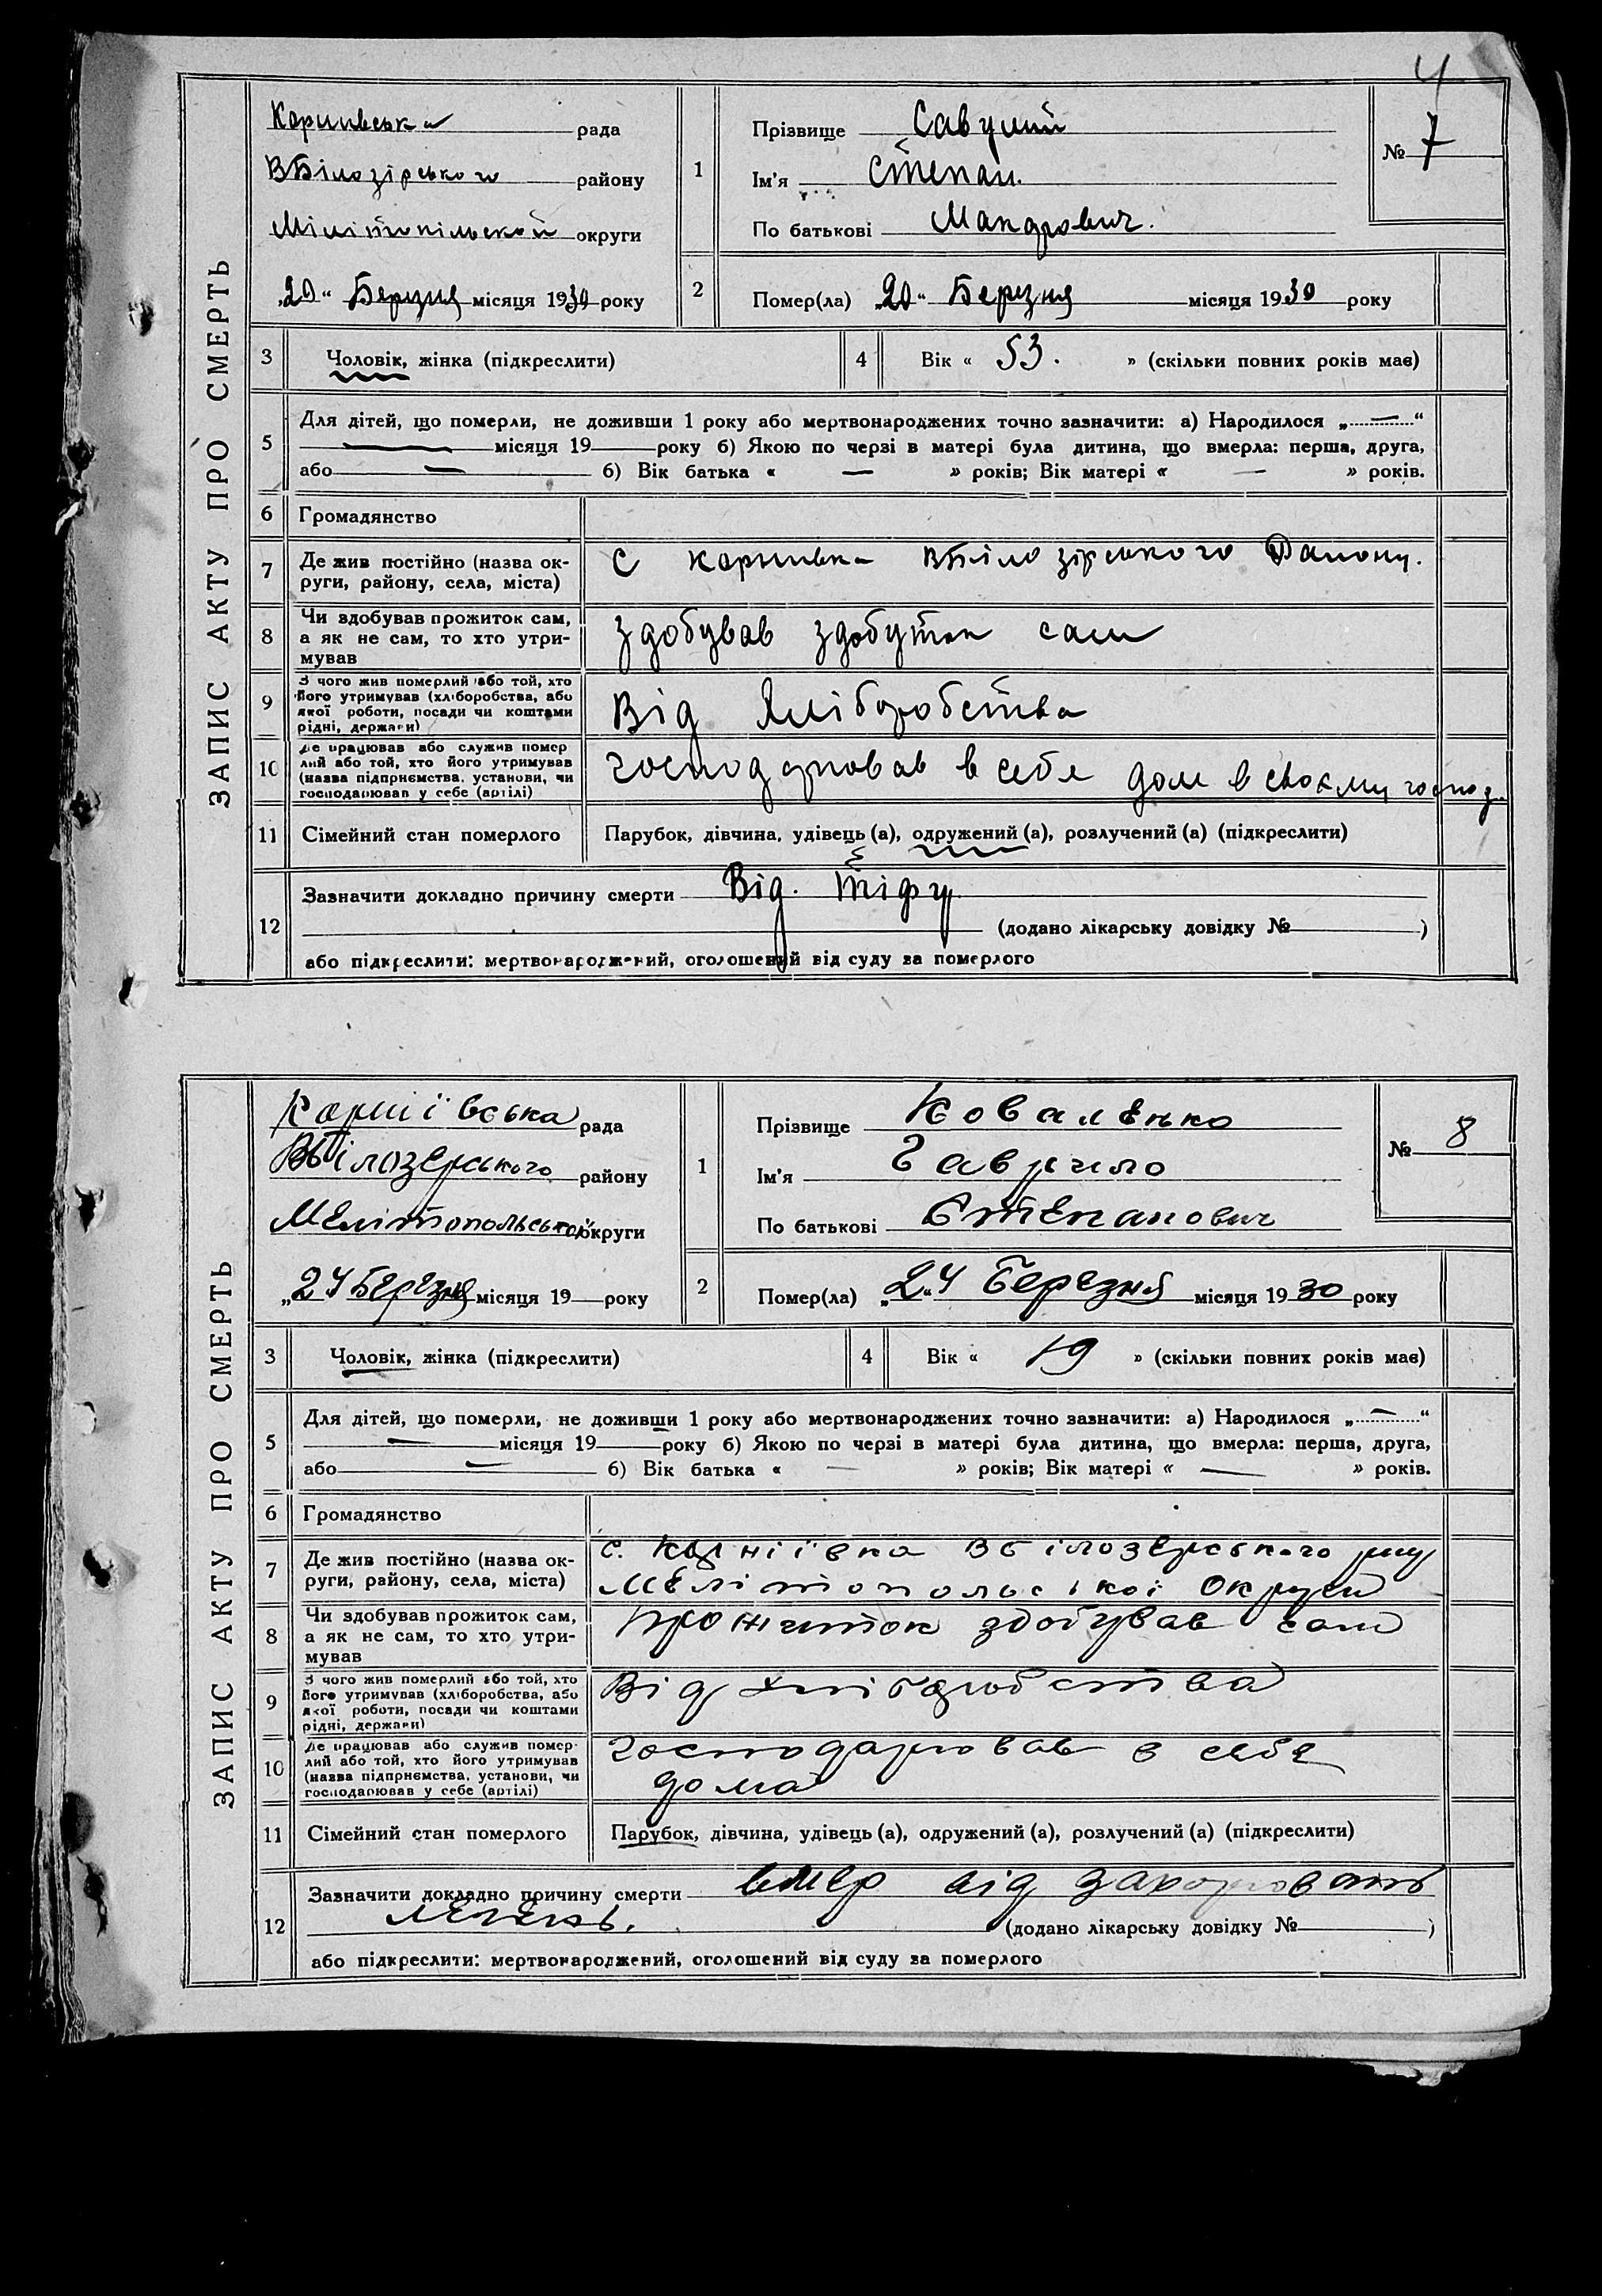 4
ЗАПИС АКТУ ПРО СМЕРТЬ
Корніївська рада
ВБілозірського району
Мілітопільской округи
„20“ Березня місяця 1930 року
1
Прізвище
Імʼя Степан.
По батькові
№ 7
2
Помер(ла) „20“ Березня місяця 1930 року
3 Чоловік, жінка (підкреслити)
4 Вік « 53. » (скільки повних років має)
5 Для дітей, що померли, не доживши 1 року або мертвонароджених точно зазначити: а) Народилося „—“
— місяця 19 року б) Якою по черзі в матері була дитина, що вмерла: перша, друга,
або — б) Вік батька « — » років; Вік матері « — » років.
6 Громадянство
7 Де жив постійно (назва ок-
руги, району, села, міста)
с Корніівка ВБілозірського Району.
8 Чи здобував прожиток сам,
а як не сам, то хто утри-
мував
здобував здобуток сам
9 З чого жив померлий або той, хто
його утримував (хліборобства, або
якої роботи, посади чи коштами
рідні, держави)
Від Хліборобства
10 Де працював або служив помер
лий або той, хто його утримував
(назва підприємства, установи, чи
господарював у себе (артілі)
господарював в себе дом в своєму господ.
11 Сімейний стан померлого
Парубок, дівчина, удівець (а), одружений (а), розлучений (а) (підкреслити)
12 Зазначити докладно причину смерти Від. тіфу
(додано лікарську довідку № )
або підкреслити: мертвонароджений, оголошений від суду за померлого
ЗАПИС АКТУ ПРО СМЕРТЬ
Корніївська рада
ВБілозерського району
Мелітопольської округи
„24 Березня місяця 19 року
1
Прізвище Коваленко
Імʼя Гаврило
По батькові Степанович
№ 8
2
Помер(ла) „24“ Березня місяця 1930 року
3 Чоловік, жінка (підкреслити)
4 Вік « 19 » (скільки повних років має)
5 Для дітей, що померли, не доживши 1 року або мертвонароджених точно зазначити: а) Народилося „—“
— місяця 19 року б) Якою по черзі в матері була дитина, що вмерла: перша, друга,
або — б) Вік батька « — » років; Вік матері « — » років.
6 Громадянство
7 Де жив постійно (назва ок-
руги, району, села, міста)
с. Корніївка Вбілозерського рну
Мелітопольської Округи
8 Чи здобував прожиток сам,
а як не сам, то хто утри-
мував
Прожиток здобував сам
9 З чого жив померлий або той, хто
його утримував (хліборобства, або
якої роботи, посади чи коштами
рідні, держави)
Від хліборобства
10 Де працював або служив помер-
лий або той, хто його утримував
(назва підприємства, установи, чи
господарював у себе (артілі)
Господарював в себе
дома
11 Сімейний стан померлого
Парубок, дівчина, удівець (а), одружений (а), розлучений (а) (підкреслити)
12 Зазначити докладно причину смерти вмер від
легень. (додано лікарську довідку № )
або підкреслити: мертвонароджений, оголошений від суду за померлого